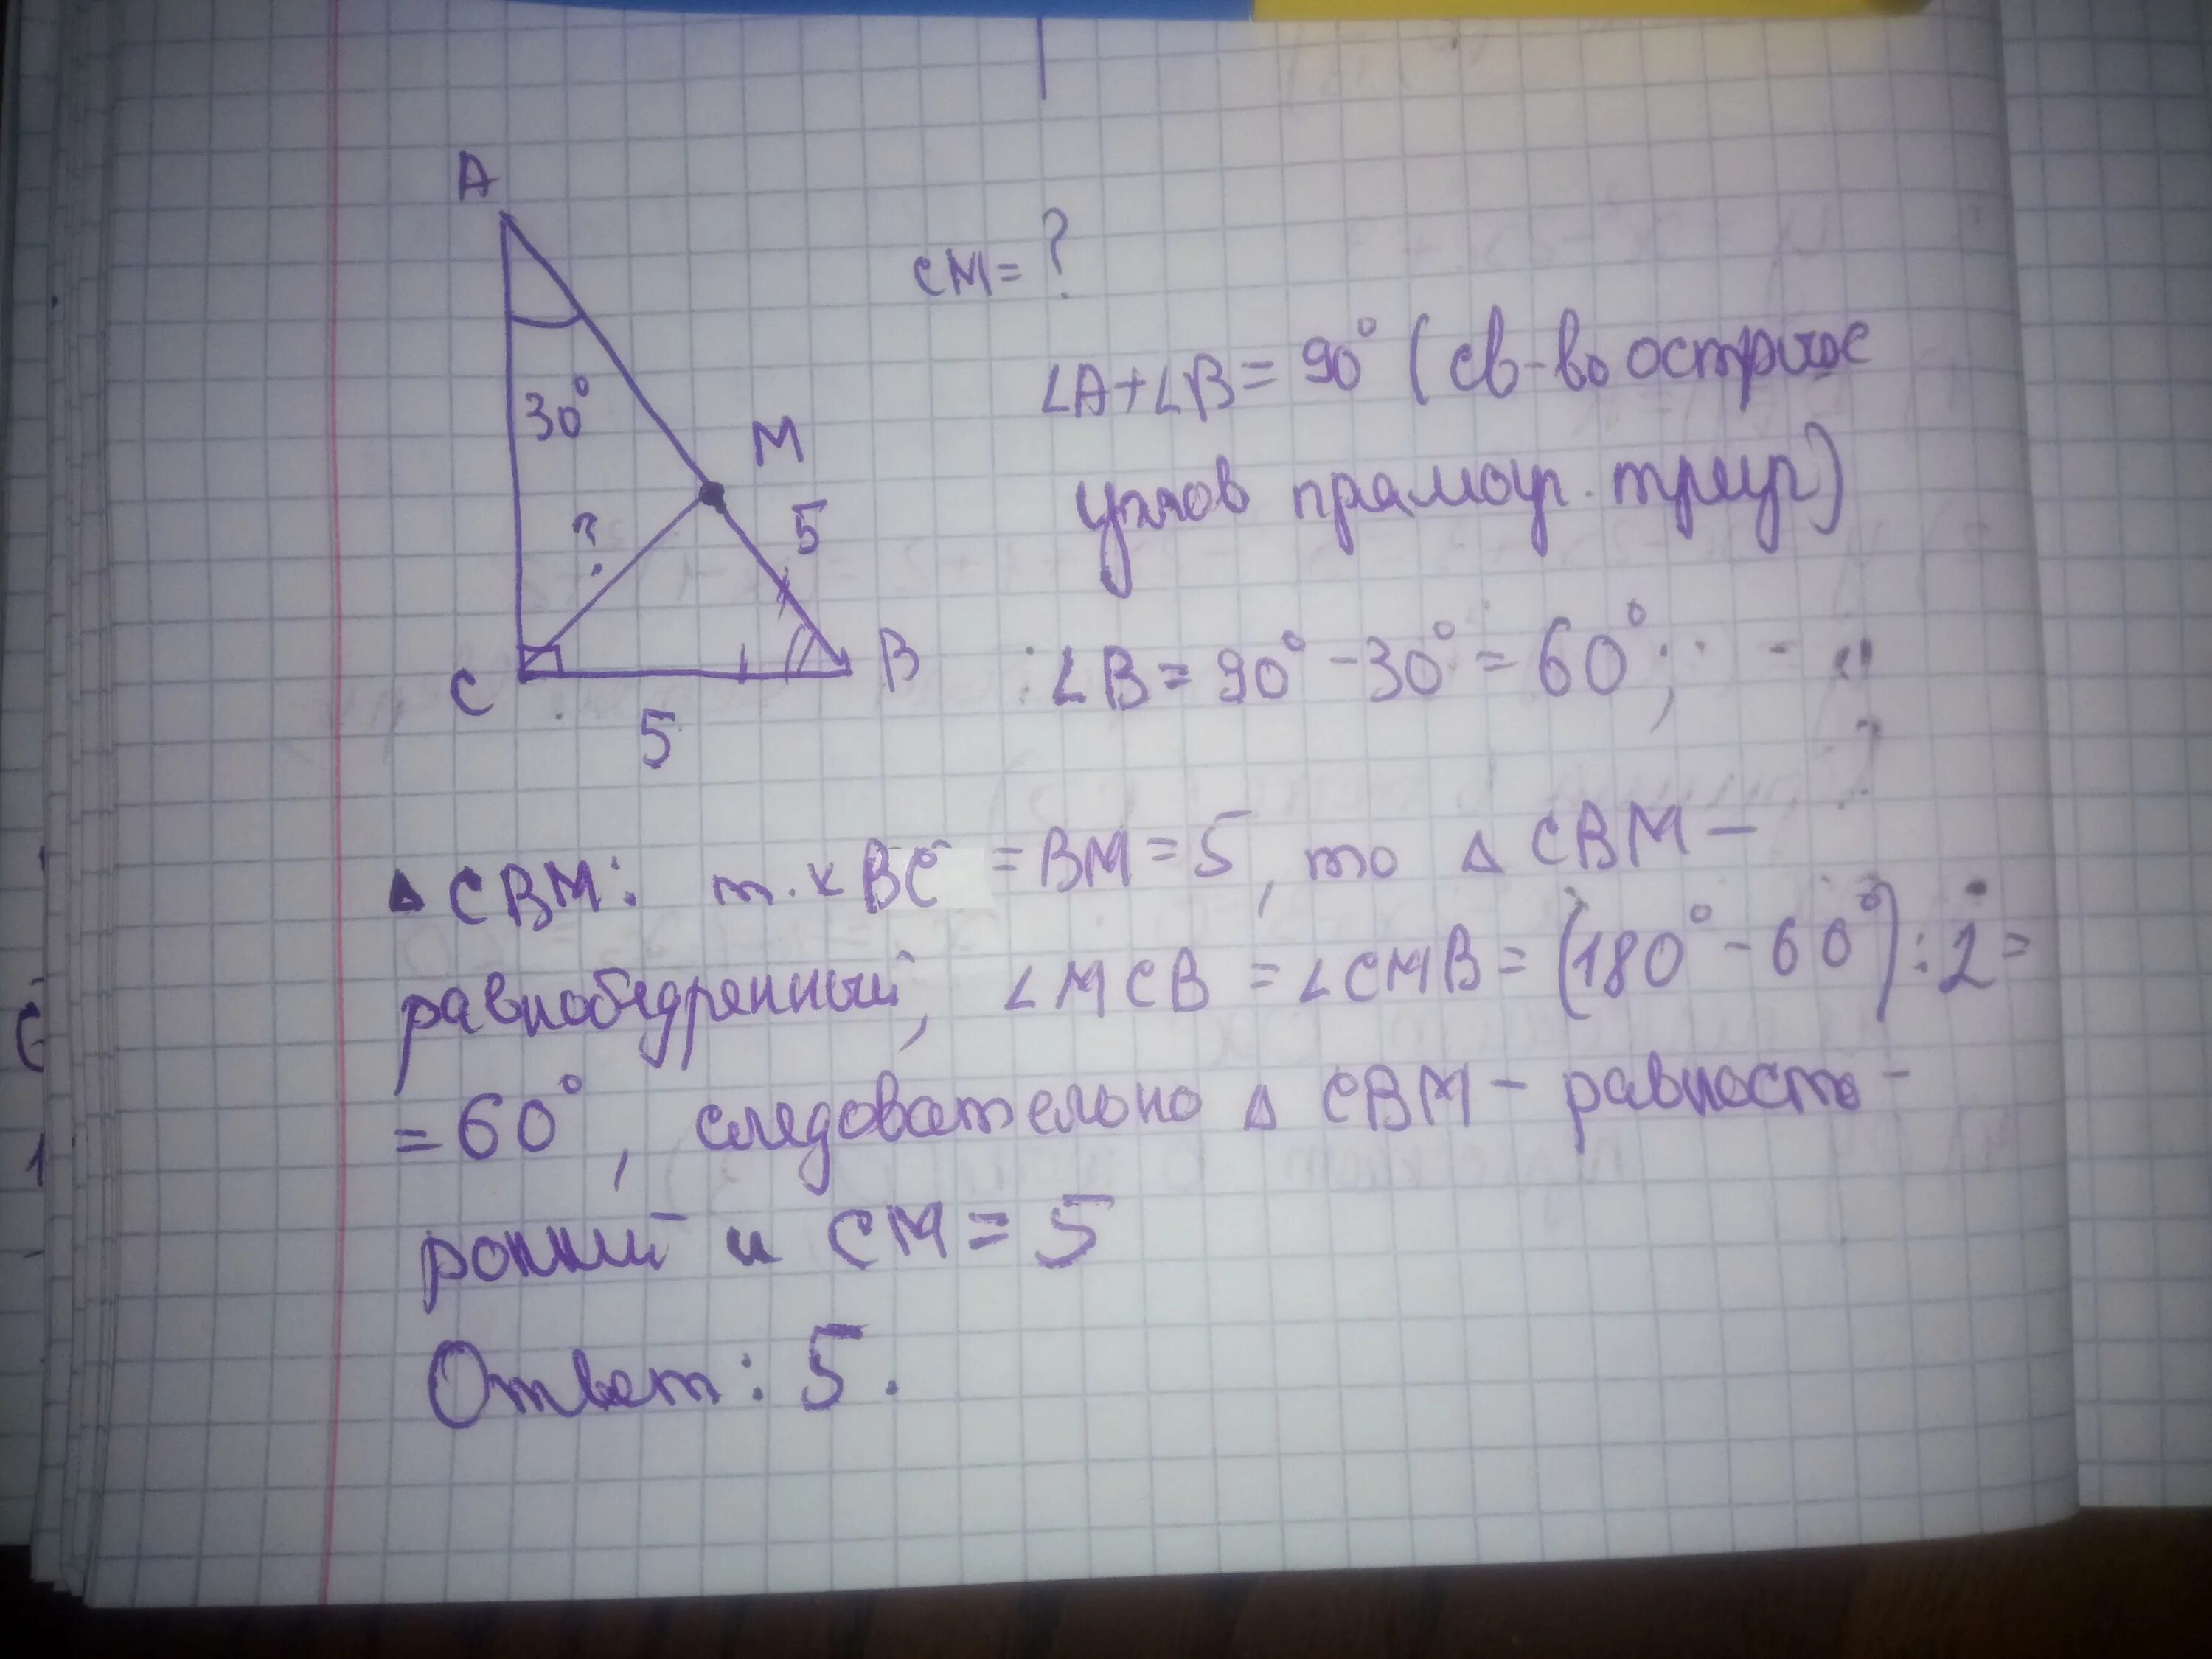 A
CM = ?
∠A+∠B = 90° (св-во острых
30°
M
углов прямоуг. треуг)
?
5
C
B
∠B = 90° - 30° = 60°;
5
Δ CBM: т.к BC = BM = 5, то Δ CBM –
равнобедренный, ∠MCB = ∠CMB = (180° - 60°) : 2 =
= 60°, следовательно Δ CBM – равносто-
ронний и CM = 5
Ответ: 5.